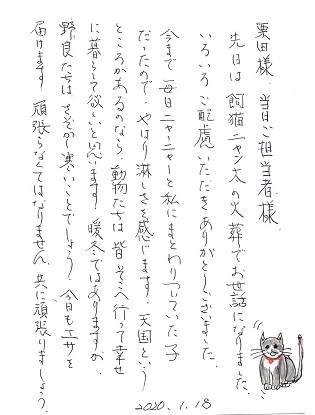 栗田様 当日ご担当者様
先日は飼猫ニャン太の火葬でお世話になりました。
いろいろご配慮いただきありがとうございました。
今まで毎日ニャーニャーと私にまとわりついていた子
だったので、やはり淋しさを感じます。天国という
ところがあるのなら、動物たちは皆そこへ行って幸せ
に暮らして欲しいと思います。暖冬ではありますが、
野良たちはさぞかし寒いことでしょう。今日もエサを
届けます。頑張らなくてはなりません。共に頑張りましょう。
2020.1.18